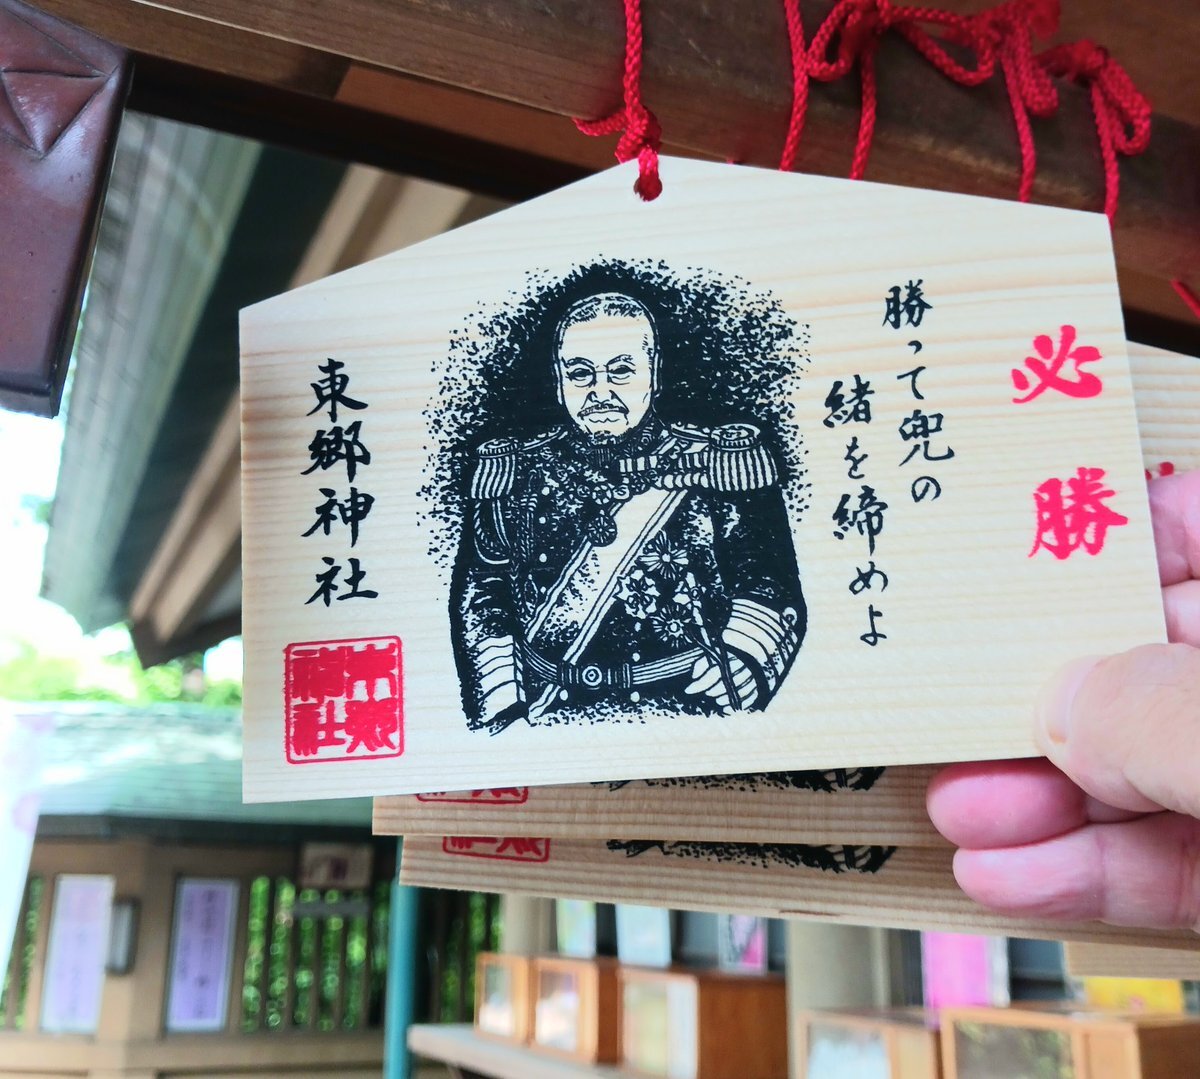 必勝
勝って兜の
緒を締めよ
東郷神社
東郷
神社